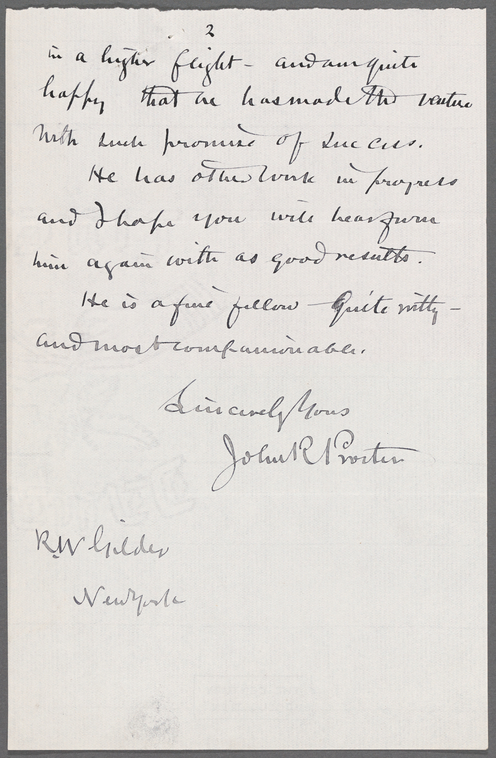 2
in a higher flight - and am quite
happy that he has made the venture
with such promise of success.
He has other work in progress
and I hope you will hear from
him again with as good results.
He is a fine fellow - Quite witty -
and most companionable.
Sincerely Yours
John R Procter
R.W Gilder
New York